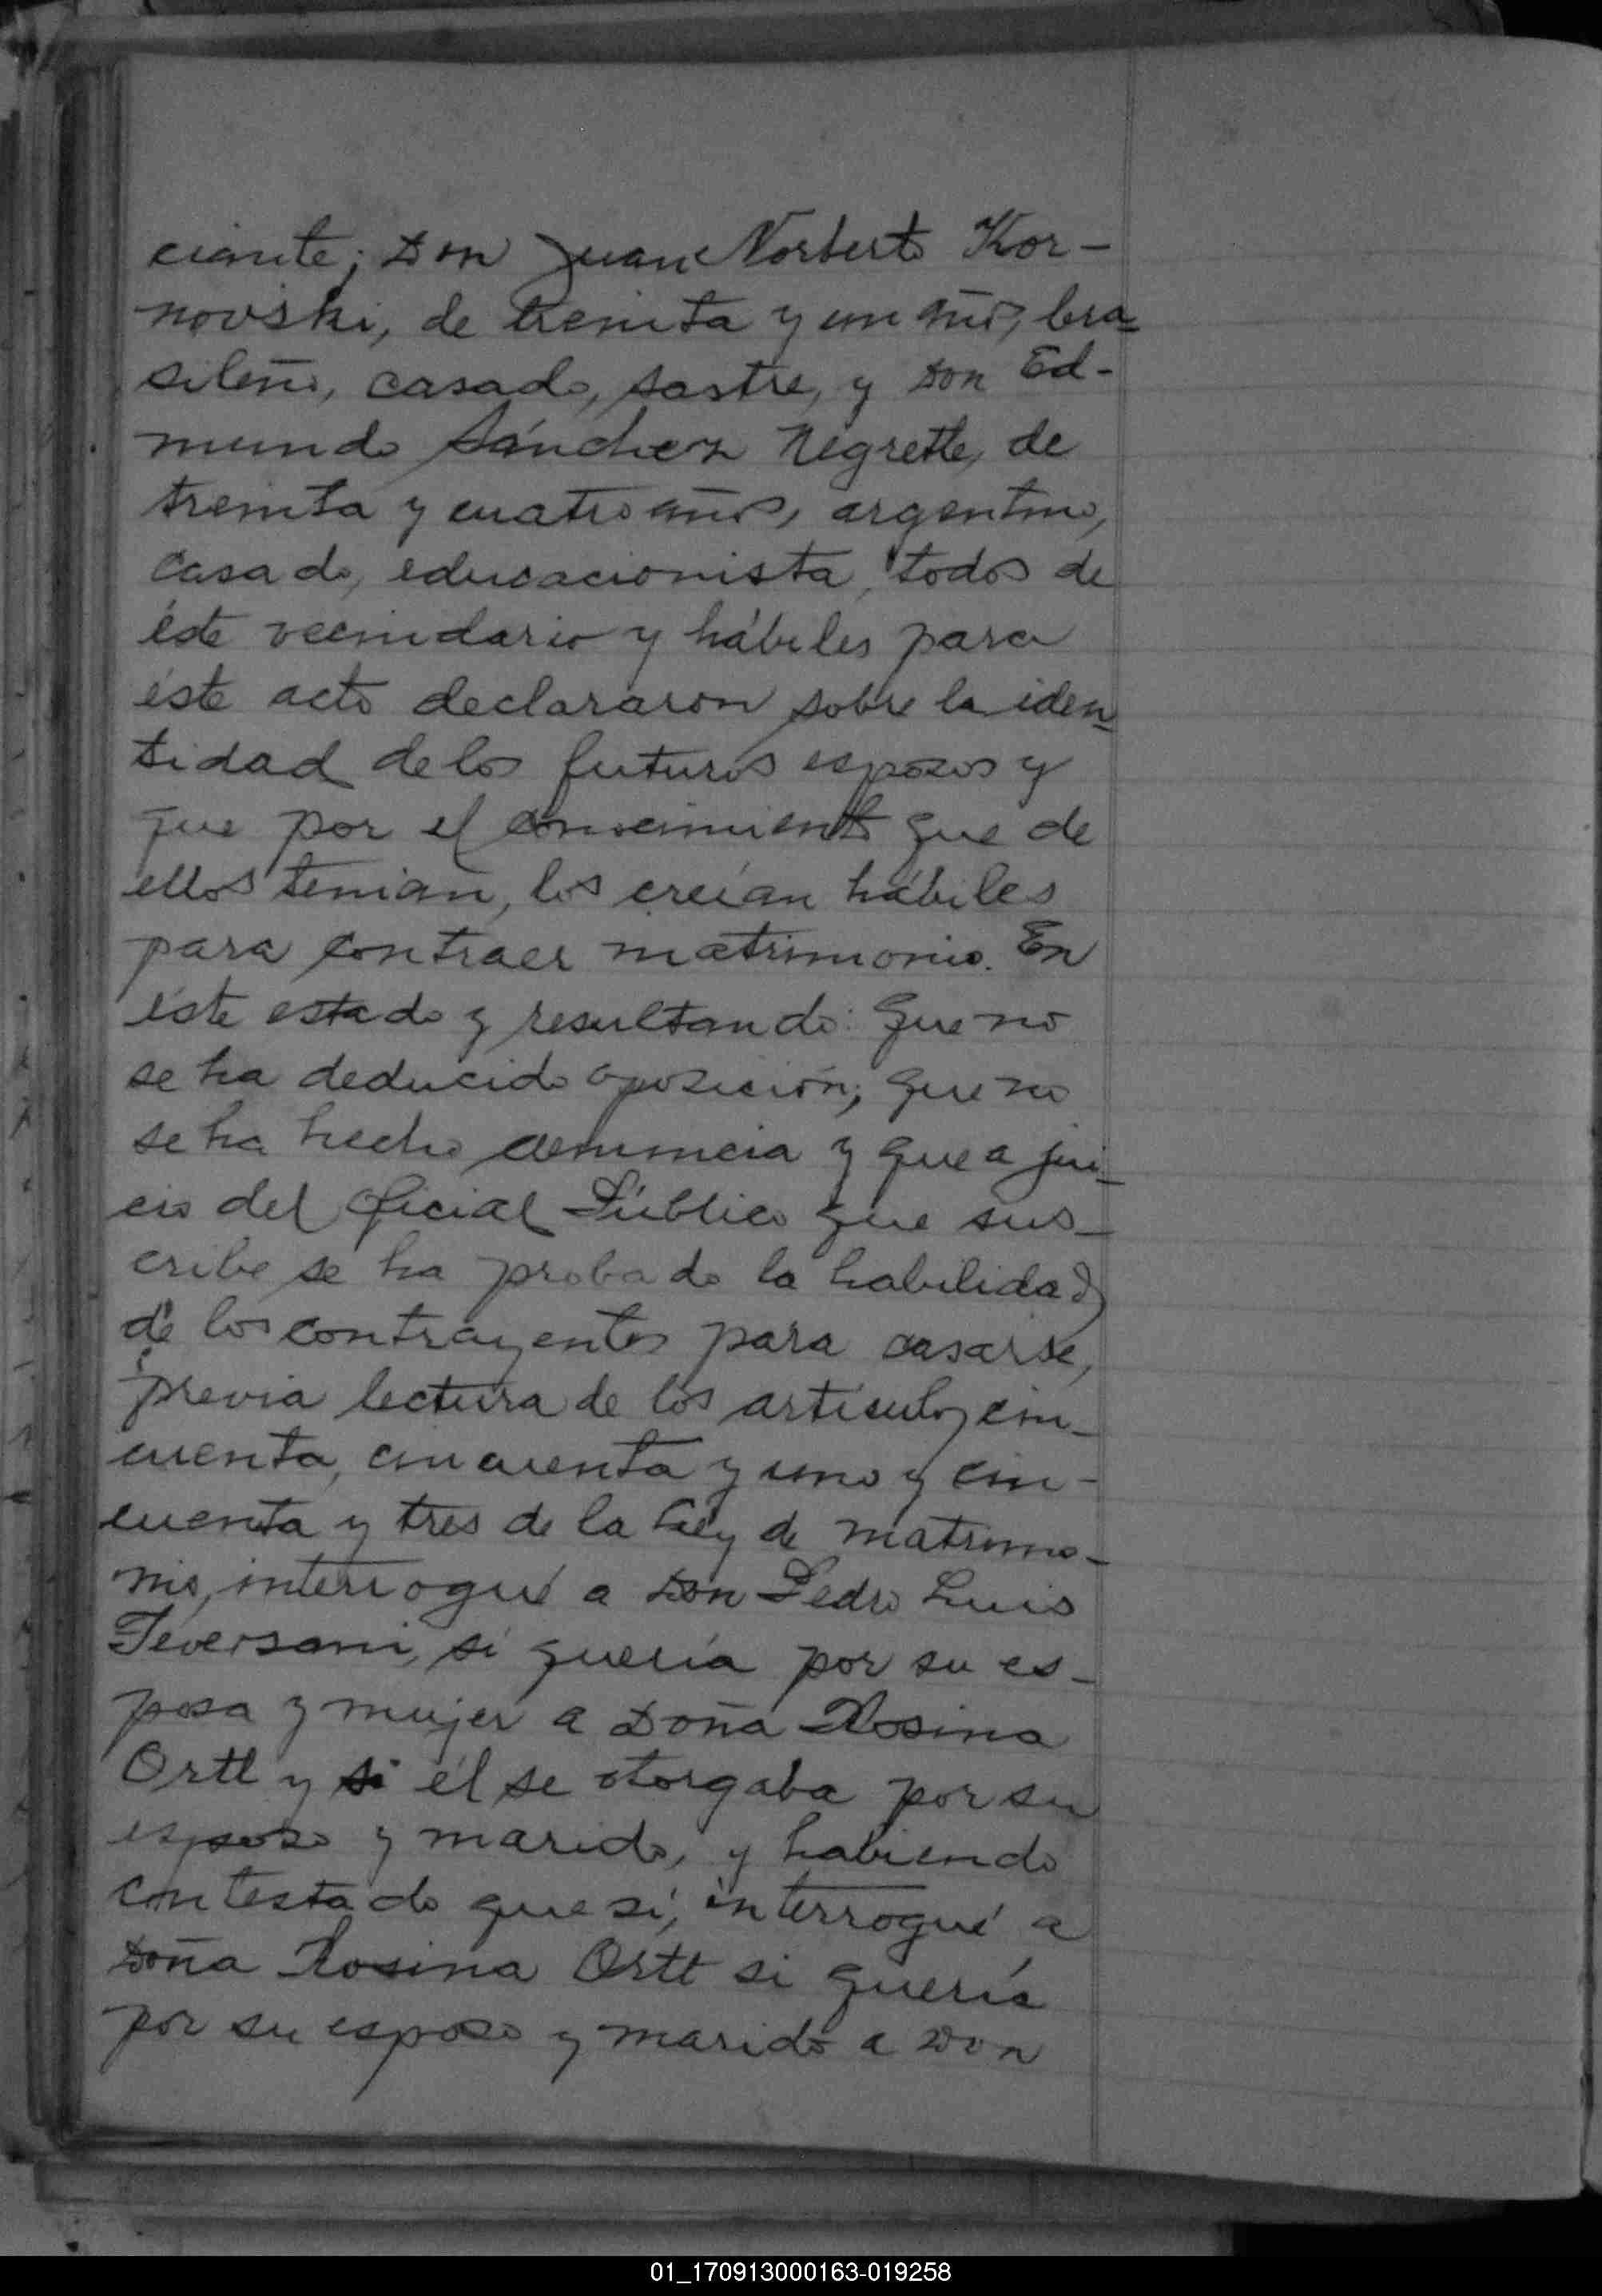 ciante; Don Juan Norberto Kor-
novski, de treinta y un años, bra-
sileño, casado, sastre, y Don Ed-
mundo Sánchez Negrette, de
treinta y cuatro años, argentino,
casado, educacionista, todos de
éste vecindario y hábiles para
éste acto declararon sobre la iden-
tidad de los futuros esposos y
que por el conocimiento que de
ellos tenian, los creían hábiles
para contraer matrimonio. En
éste estado y resultando: Que no
se ha deducido oposición; que no
se ha hecho denuncia y que a jui-
cio del Oficial Público que sus-
cribe se ha probado la habilidad
de los contrayentes para casarse,
previa lectura de los artículos cin-
cuenta, cincuenta y uno y cin-
cuenta y tres de la Ley de matrimo-
nio, interrogué a Don Pedro Luis
Teversani, si quería por su es-
posa y mujer a Doña Rosina
Ortt y si él se otorgaba por su
esposo y marido, y habiendo
contestado que sí, interrogué a
Doña Rosina Ortt si quería
por su esposo y marido a Don
01_170913000163-019258